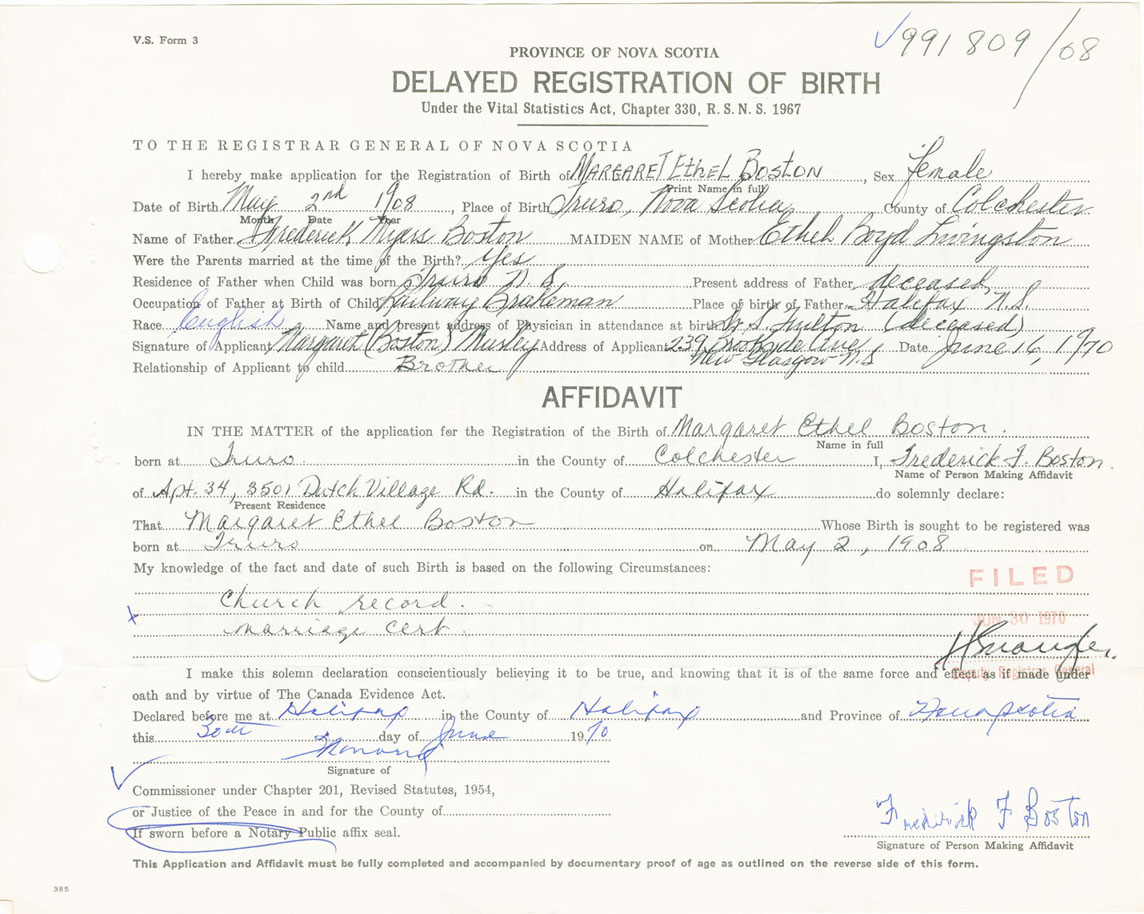 V.S. Form 3
991 809/08
PROVINCE OF NOVA SCOTIA
DELAYED REGISTRATION OF BIRTH
Under the Vital Statistics Act, Chapter 330, R.S.N.S. 1967
TO THE REGISTRAR GENERAL OF NOVA SCOTIA
I hereby make application for the Registration of Birth of MARGARET EthEL BOSTON, Sex Female
Print Name in full
Date of Birth May 2nd 1908, Place of Birth Truro, Nova Scotia County of Colchester
Month Date Year
Name of Father Frederick Myers Boston MAIDEN NAME of Mother Ethel Boyd Livingston
Were the Parents married at the time of the Birth? Yes
Residence of Father when Child was born Truro N.S. Present address of Father deceased
Occupation of Father at Birth of Child Railway Brakeman Place of birth of Father Halifax N.S.
Race English Name and present address of Physician in attendance at birth W. S. Fulton (deceased)
Signature of Applicant Margaret (Boston) Address of Applicant 239 Brookside Ave New Glasgow N.S. Date June 16, 1970
Relationship of Applicant to child Brother
AFFIDAVIT
IN THE MATTER of the application for the Registration of the Birth of Margaret Ethel Boston.
Name in full
born at Truro in the County of Colchester I, Frederick F. Boston.
Name of Person Making Affidavit
of Apt. 34, 3501 Dutch Village Rd. in the County of Halifax do solemnly declare:
Present Residence
That Margaret Ethel Boston Whose Birth is sought to be registered was
born at Truro on May 2, 1908
My knowledge of the fact and date of such Birth is based on the following Circumstances:
FILED
Church record.
JUN 30 1970
x
Marriage Cert.
Deputy Registrar General
I make this solemn declaration conscientiously believing it to be true, and knowing that it is of the same force and effect as if made under
oath and by virtue of The Canada Evidence Act.
Declared before me at Halifax in the County of Halifax and Province of Nova Scotia
this 30th day of June 1970
Signature of
Commissioner under Chapter 201, Revised Statutes, 1954,
or Justice of the Peace in and for the County of
If sworn before a Notary Public affix seal.
Frederick F Boston
Signature of Person Making Affidavit
This Application and Affidavit must be fully completed and accompanied by documentary proof of age as outlined on the reverse side of this form.
385